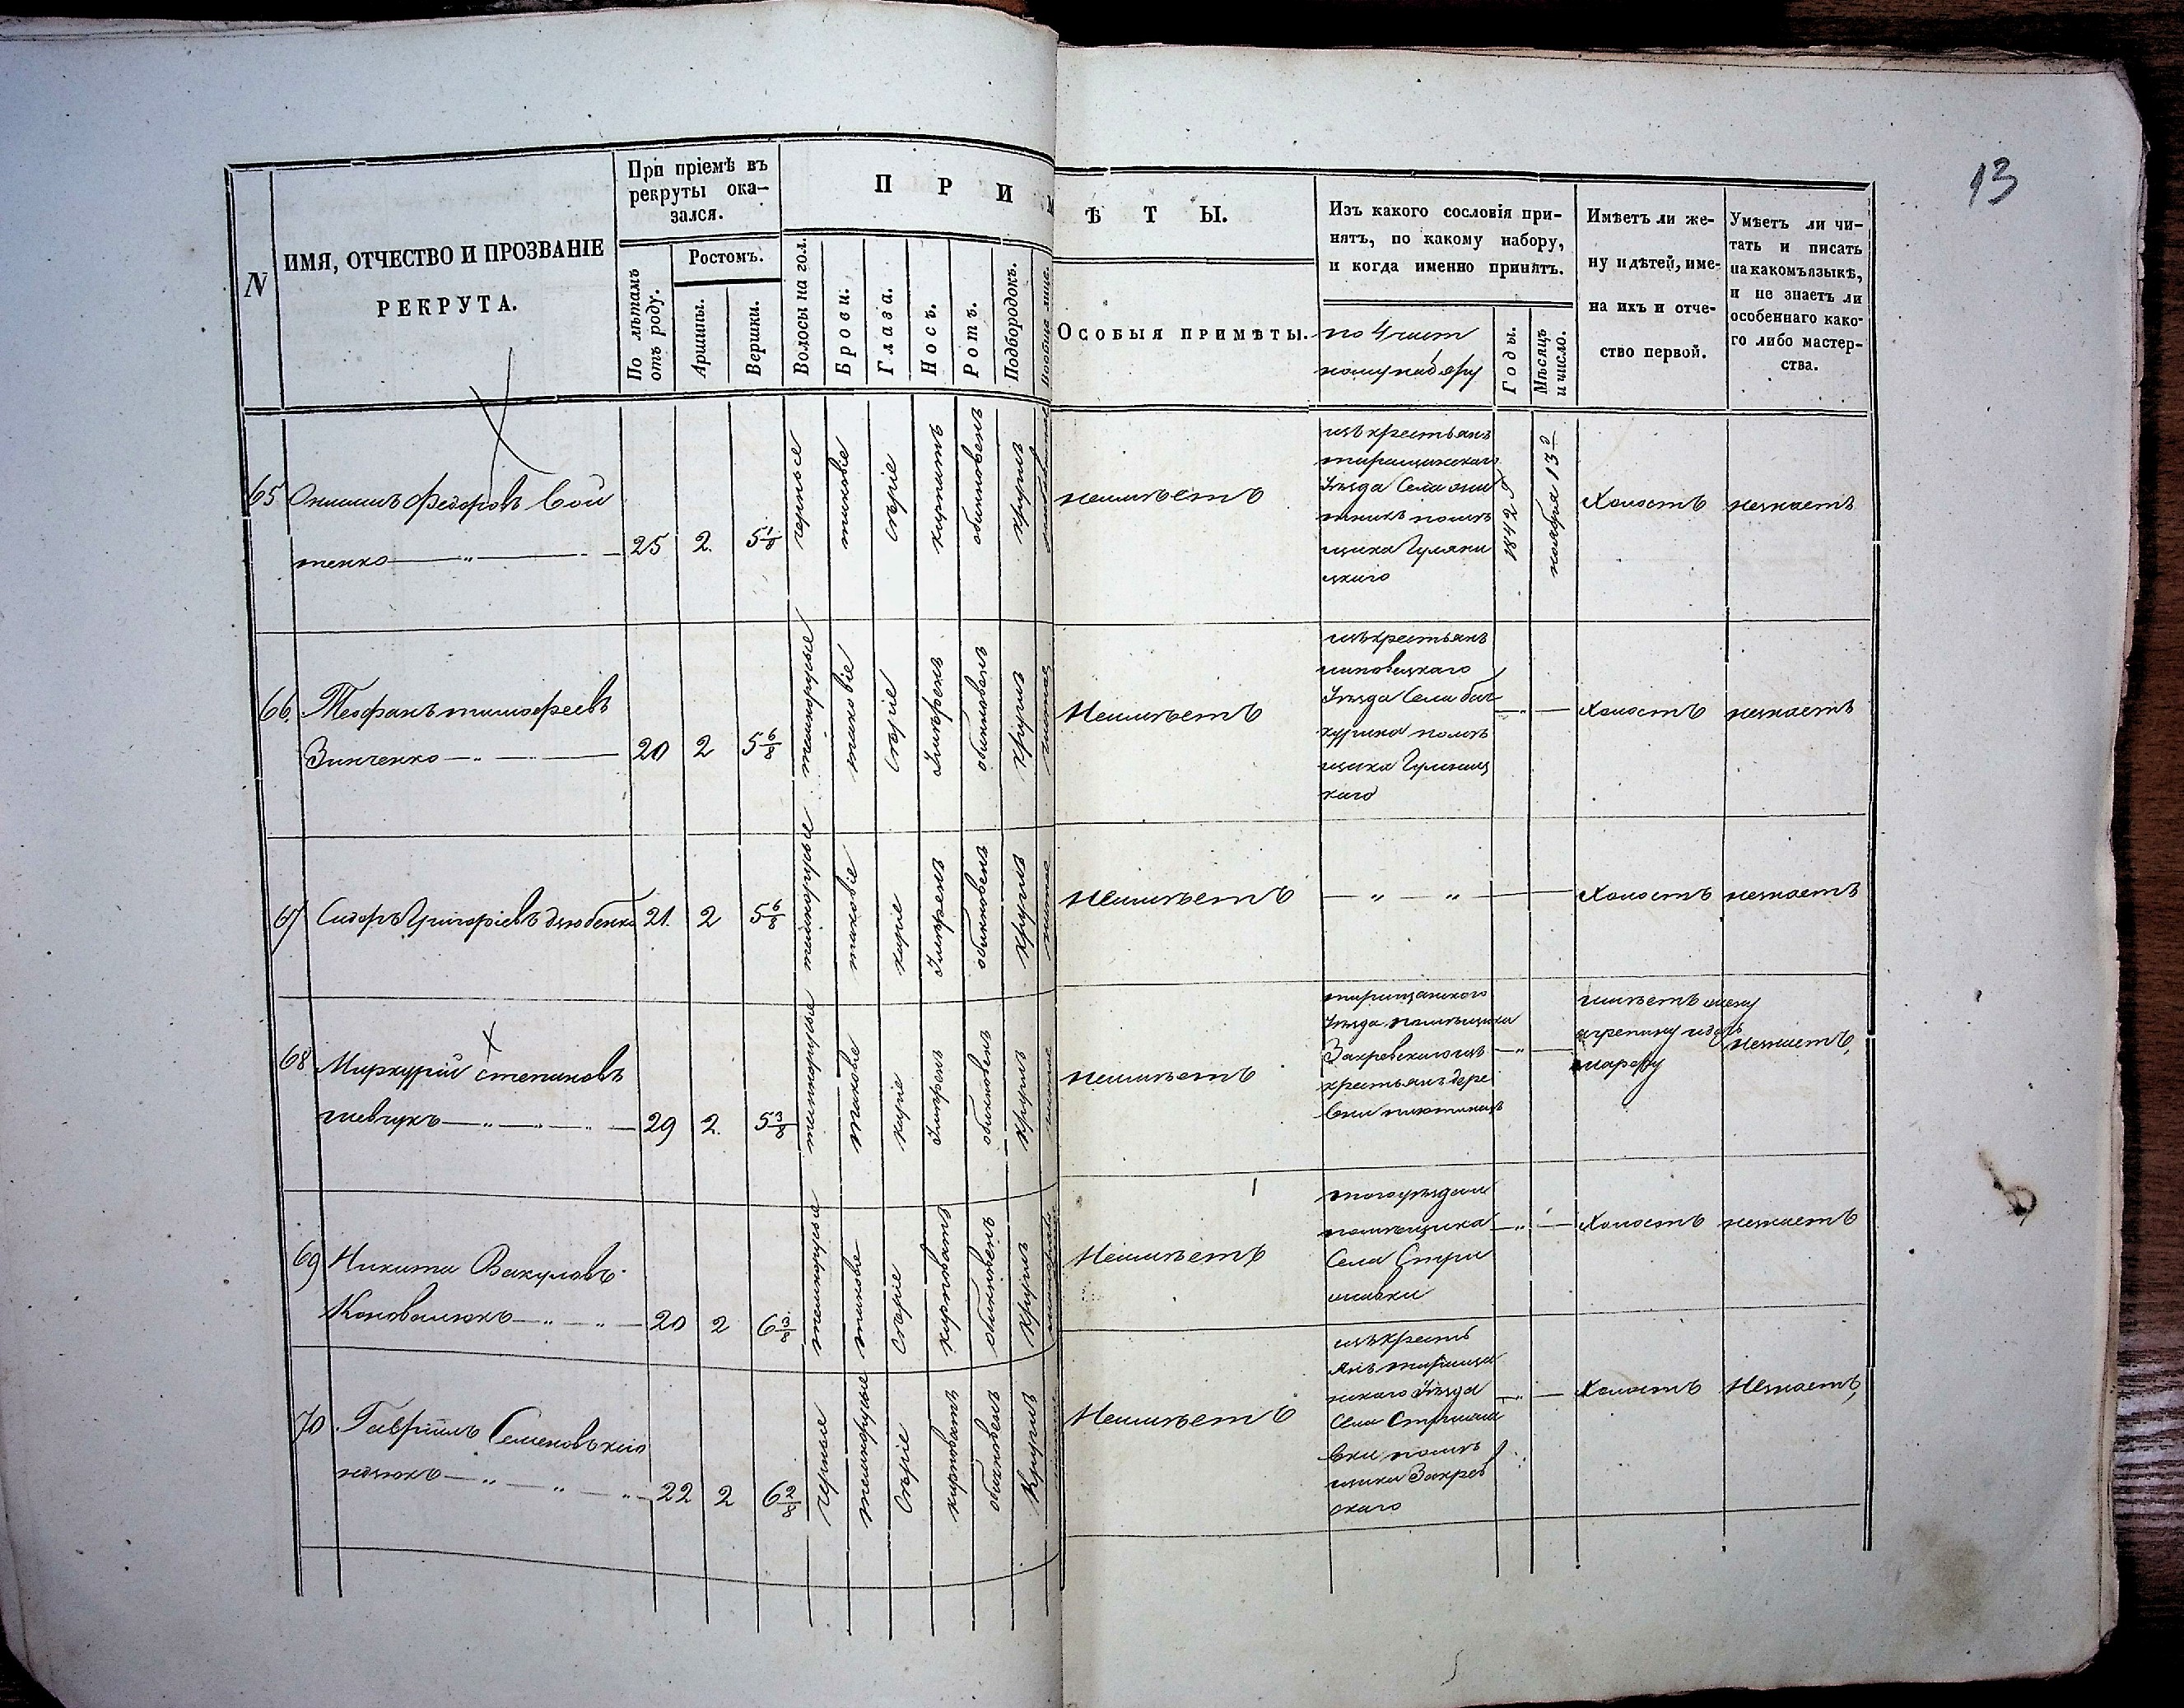 13
N
ИМЯ, ОТЧЕСТВО И ПРОЗВАНІЕ
РЕКРУТА.
При пріемѣ въ
рекруты ока-
зался.
По лѣтамъ
отъ роду.
Ростомъ.
Аршины.
Вершки.
П Р И М
Ѣ Т Ы.
Волосы на гол.
Брови.
Глаза.
Носъ.
Ротъ.
Подбородокъ.
Вообще лице.
ОСОБЫЯ ПРИМѢТЫ.
Изъ какого сословія при-
нятъ, по какому набору,
и когда именно принятъ.
Годы.
Мѣсяцъ
и число.
Имѣетъ ли же-
ну и дѣтей, име-
на ихъ и отче-
ство первой.
Умѣетъ ли чи-
тать и писать
на какомъ языкѣ,
и не знаетъ ли
особеннаго како-
го либо мастер-
ства.
по 4 част
ному набору
65 Федоровъ Вои
тенко 25 2. 5 1/8
черные
таковіе
серіе
обикновенъ
круглъ
неимѣетъ
изъ крестьянъ
таращанского
Уѣзда Села
помѣ
щика Гуляни
цкаго
1842
ноября 13
Холостъ
незнаетъ
66. Теофанъ тимофеевъ
Зинченко 20 2 5 6/8
темнорусые
таковіе
серіе
Умѣренъ
обикновенъ
круглъ
чистое
Неимѣетъ
изъ крестьянъ
липовецкаго
Уѣзда Села
помѣ
щика Гуляниц
каго
Холостъ
незнаетъ
67 Сидоръ Григоріевъ дзюбенко 21. 2 5 6/8
темнорусые
таковіе
каріе
Умѣренъ
обикновенъ
круглъ
чистое
Неимѣетъ
— „ — „ —
Холостъ
незнаетъ
68 Меркурій степановъ
шевчукъ 29 2. 5 3/8
темнорусые
таковіе
каріе
Умѣренъ
обикновенъ
круглъ
чистое
неимѣетъ
таращанского
Уѣзда помѣщика
Закревского изъ
крестьянъ дере
вни
имѣетъ жену
агрепину
незнаетъ,
69 Никита Вакуловъ
Коновалюкъ 20 2 6 3/8
темнорусые
таковіе
Серіе
кирповатъ
обикновенъ
круглъ
Неимѣетъ
того уѣзда и
помѣщика
Села Стри
жавки
Холостъ
незнаетъ
70 Гавріилъ Семеновъ
22 2 6 2/8
черные
темнорусые
Серіе
кирповатъ
обикновенъ
круглъ
Неимѣетъ
изъ кресть
янъ тараща
нскаго Уѣзда
Села Стрижа
вки помѣ
щика Закрев
скаго
Холостъ
Незнаетъ,